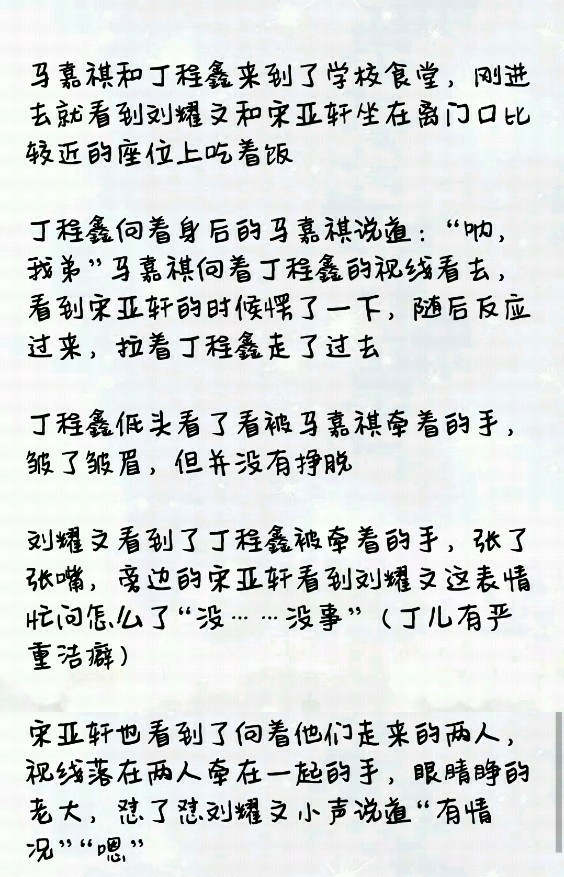 马嘉祺和丁程鑫来到了学校食堂，刚进
去就看到刘耀文和宋亚轩坐在离门口比
较近的座位上吃着饭
丁程鑫向着身后的马嘉祺说道：“呐，
我弟”马嘉祺向着丁程鑫的视线看去，
看到宋亚轩的时候愣了一下，随后反应
过来，拉着丁程鑫走了过去
丁程鑫低头看了看被马嘉祺牵着的手，
皱了皱眉，但并没有挣脱
刘耀文看到了丁程鑫被牵着的手，张了
张嘴，旁边的宋亚轩看到刘耀文这表情
忙问怎么了“没……没事”（丁儿有严
重洁癖）
宋亚轩也看到了向着他们走来的两人，
视线落在两人牵在一起的手，眼睛睁的
老大，怼了怼刘耀文小声说道“有情
况”“嗯”